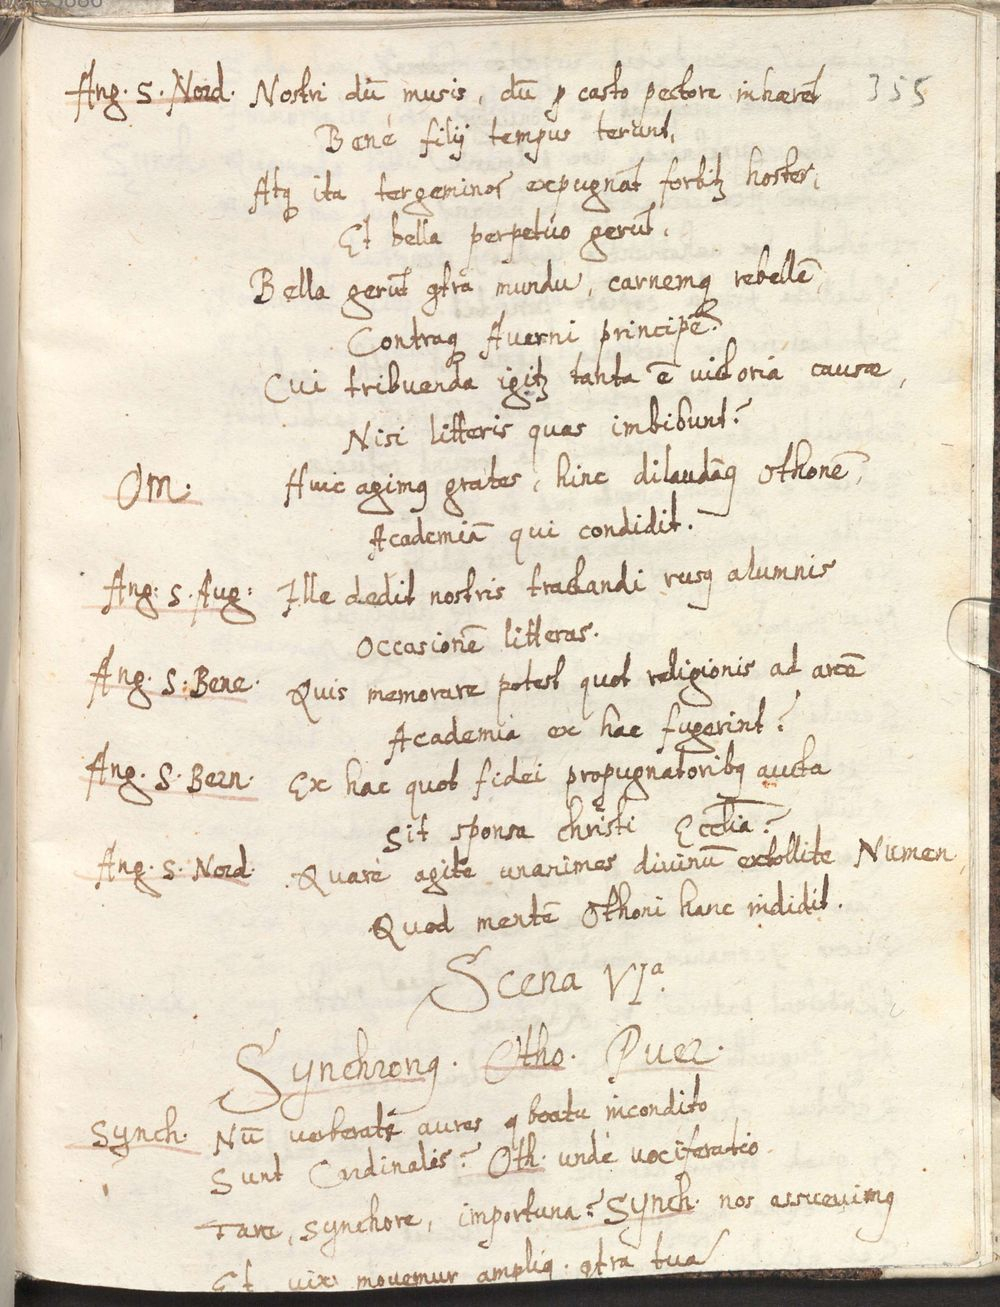 Ang. S. Nord. Nostri dū musis, dū p casto pectore inhaerēt 355
Bené filij tempus terunt,
Atq ita tergeminos expugnāt fortitz hostes,
Et bella perpetúo gerūt.
Bella gerūt gtra mundu, carnemq rebellē,
Contraq Averni principē.
Cui tribuenda igitz tanta ē victoria causae,
Nisi litteris quas imbibunt?
Om. Huic agimq grates, hinc dilaudāq Othonē,
Academiā qui condidit.
Ang: S. Aug: Ille dedit nostris tractandi rusq alumnis
Occasionē litteras.
Ang. S: Bene. Quis memorare potest quot religionis ad arcē
Academia ex hac fugerint?
Ang. S. Bern. Ex hac quot fidei propugnatoribq aucta
Sit sponsa christi Ecclia?
Ang. S. Nord. Quaré agite unanimes divinū extollite Númen
Quod mentē Othoni hanc indidit.
Scena VIa.
Synchronq. Otho. Puer.
Synch. Nū verberatę aures q boatu incondito
Sunt Cardinales? Oth. undé vociferatio
Tam, synchore, importuna? Synch. nos assuevimq
Et vix movemur ampliq. gtra tua